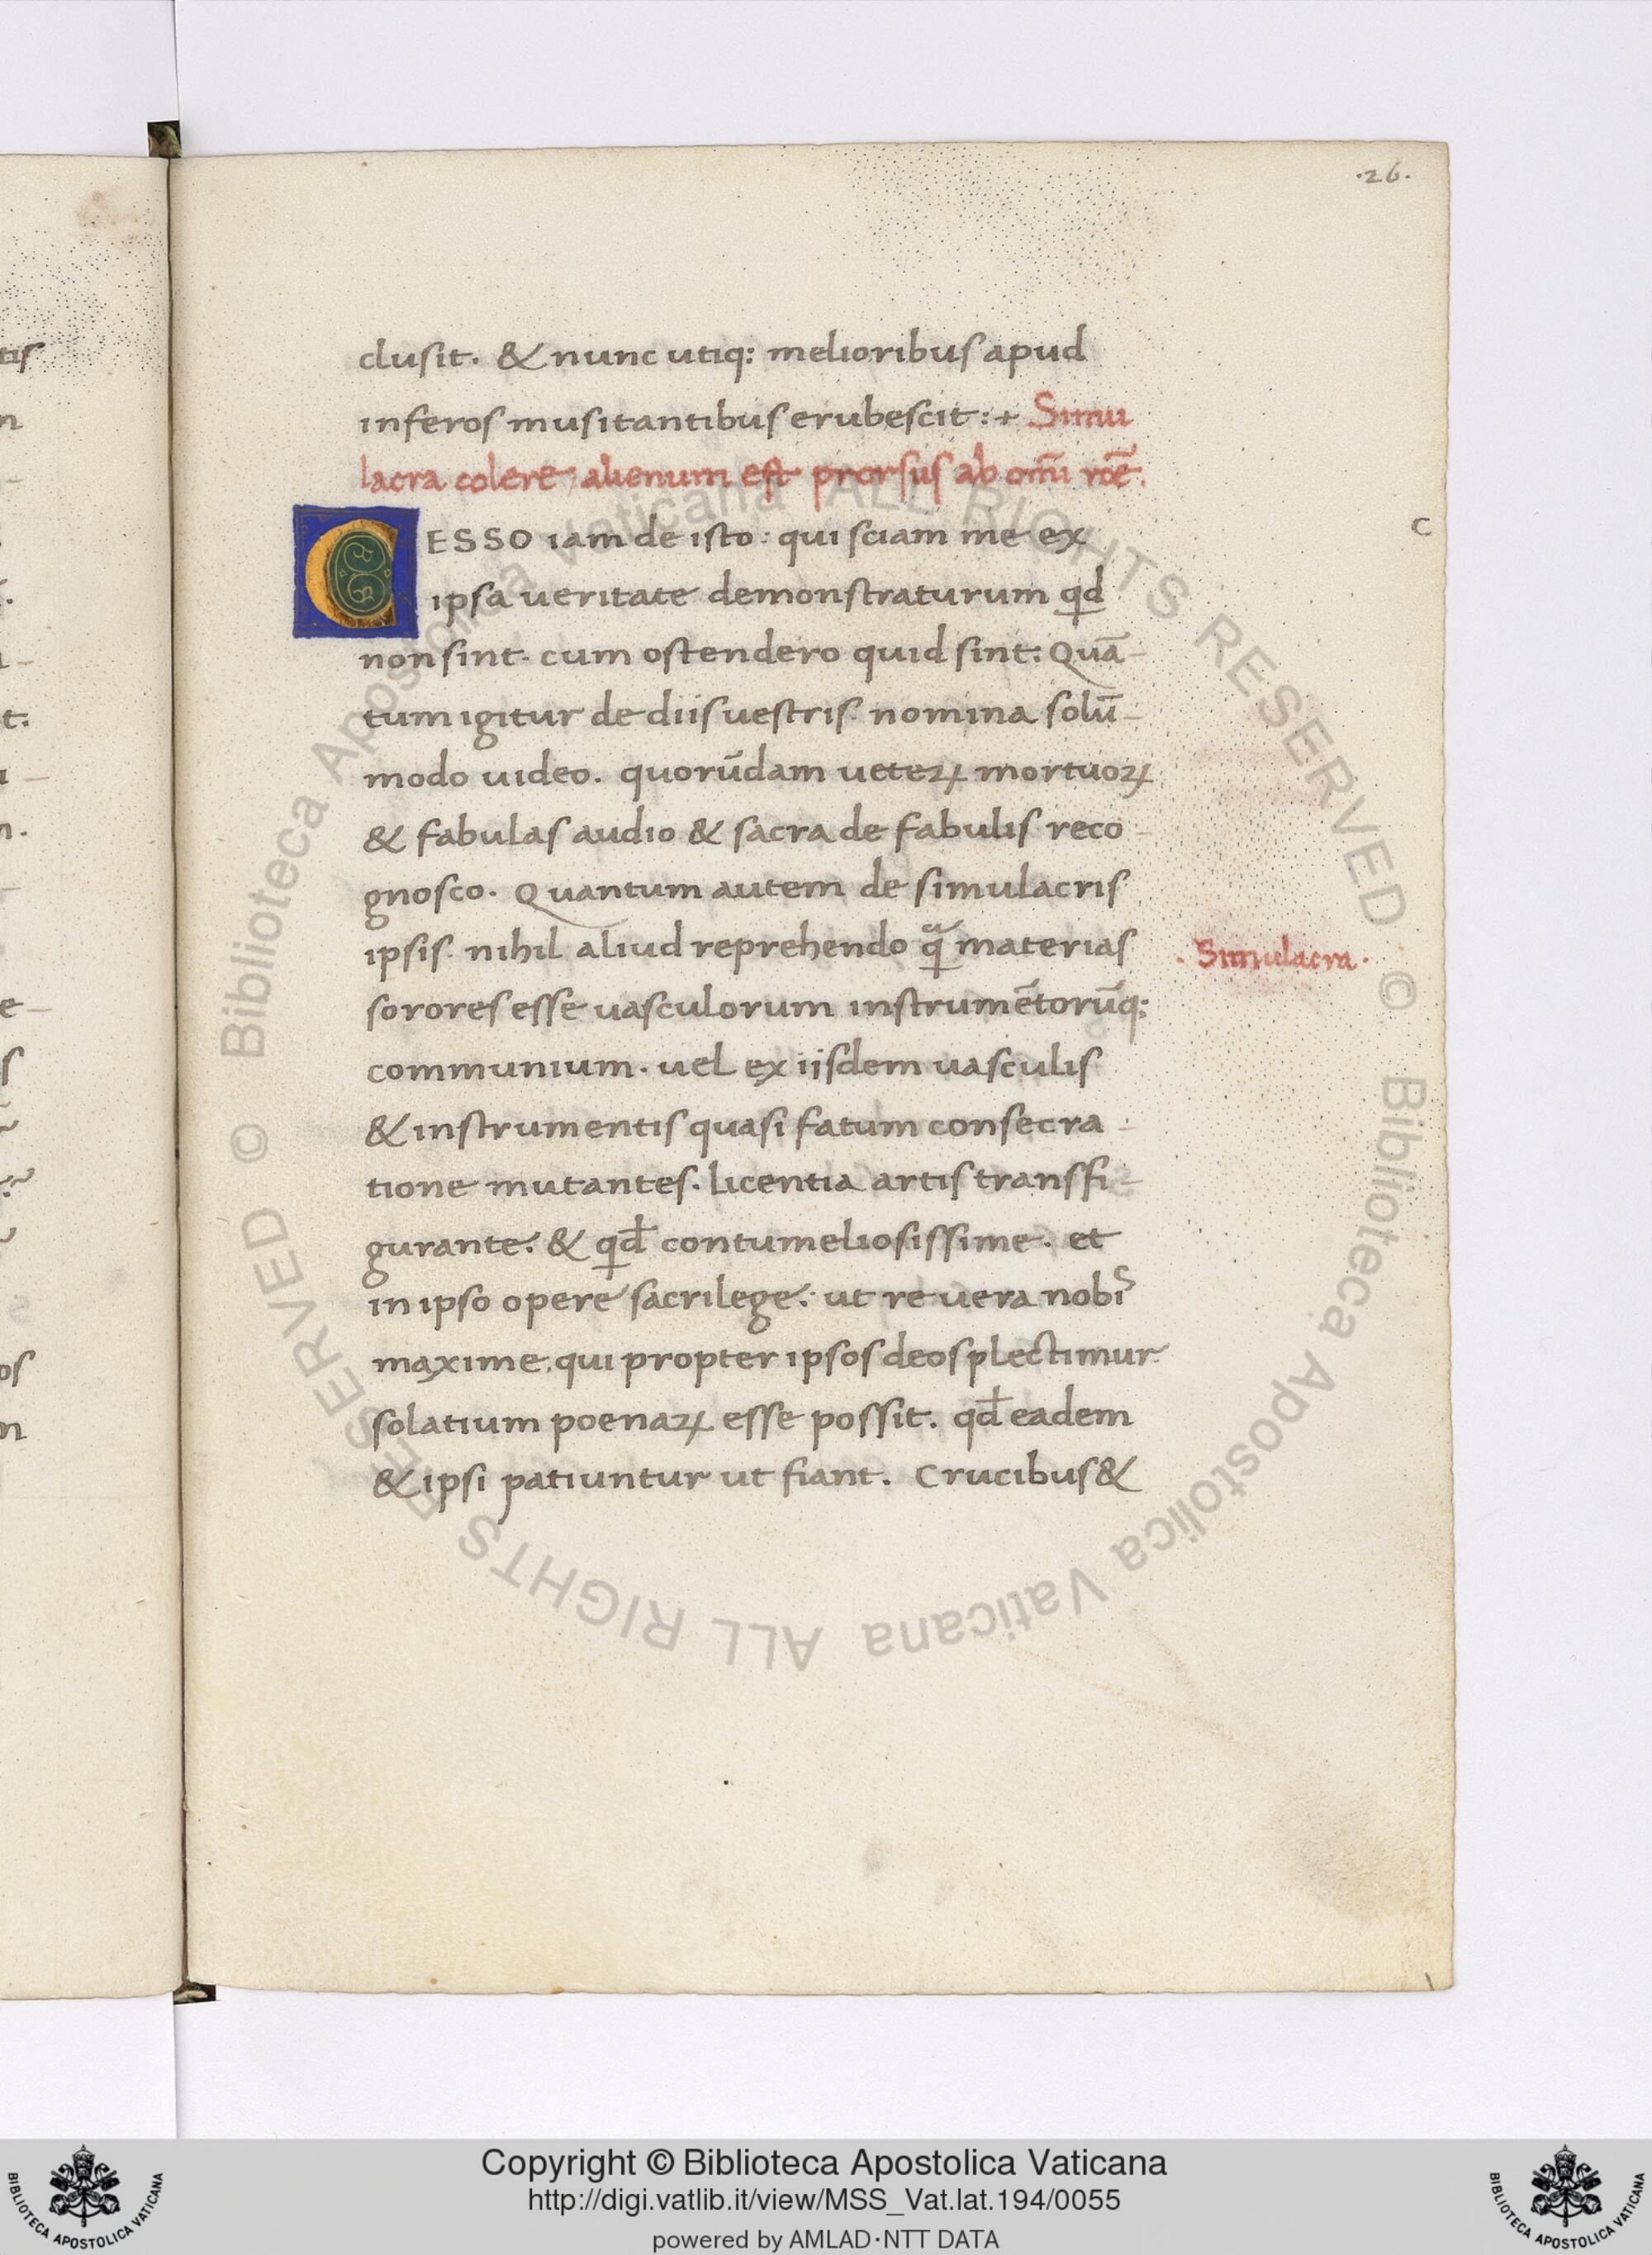 ·26·
clusit. & nunc utiq: melioribus apud
inferos musitantibus erubescit :+ Simu
lacra colere alienum est prorsus ab om̄i rōe.
CESSO iam de isto: qui sciam me ex
c
ipsa ueritate demonstraturum qd
non sint. cum ostendero quid sint: Quā-
tum igitur de diis uestris. nomina solū-
modo uideo. quorūdam ueteꝝ mortuoꝝ
& fabulas audio & sacra de fabulis reco-
gnosco. Quantum autem de simulacris
ipsis. nihil aliud reprehendo qᵃ̄ materias
·Simulacra·
sorores esse uasculorum instrumētorūq:
communium. uel ex iisdem uasculis
& instrumentis quasi fatum consecra-
tione mutantes. licentia artis transfi-
gurante. & qd̄ contumeliosissime. et
in ipso opere sacrilege. ut re uera nobiˢ
maxime, qui propter ipsos deos plectimur.
solatium poenaꝝ esse possit. qd̄ eadem
& ipsi patiuntur ut fiant. Crucibus &
tis
© Biblioteca Apostolica Vaticana ALL RIGHTS RESERVED
© Biblioteca Apostolica Vaticana ALL RIGHTS RESERVED
Copyright © Biblioteca Apostolica Vaticana
http://digi.vatlib.it/view/MSS_Vat.lat.194/0055
powered by AMLAD·NTT DATA
BIBLIOTECA APOSTOLICA VATICANA
BIBLIOTECA APOSTOLICA VATICANA